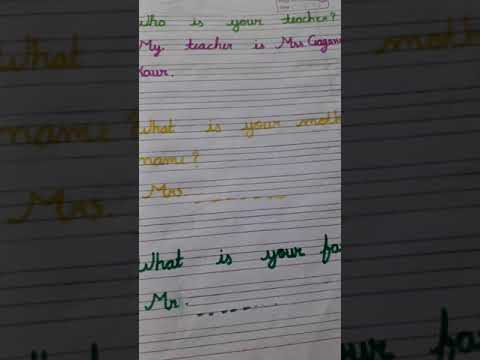 Who is your teacher?
My teacher is Mrs. Gagan
Kaur.
What is your moth
name?
Mrs. _ _ _ _ _ _ _
What is your fa
Mr. _ _ _ _ _ _ _